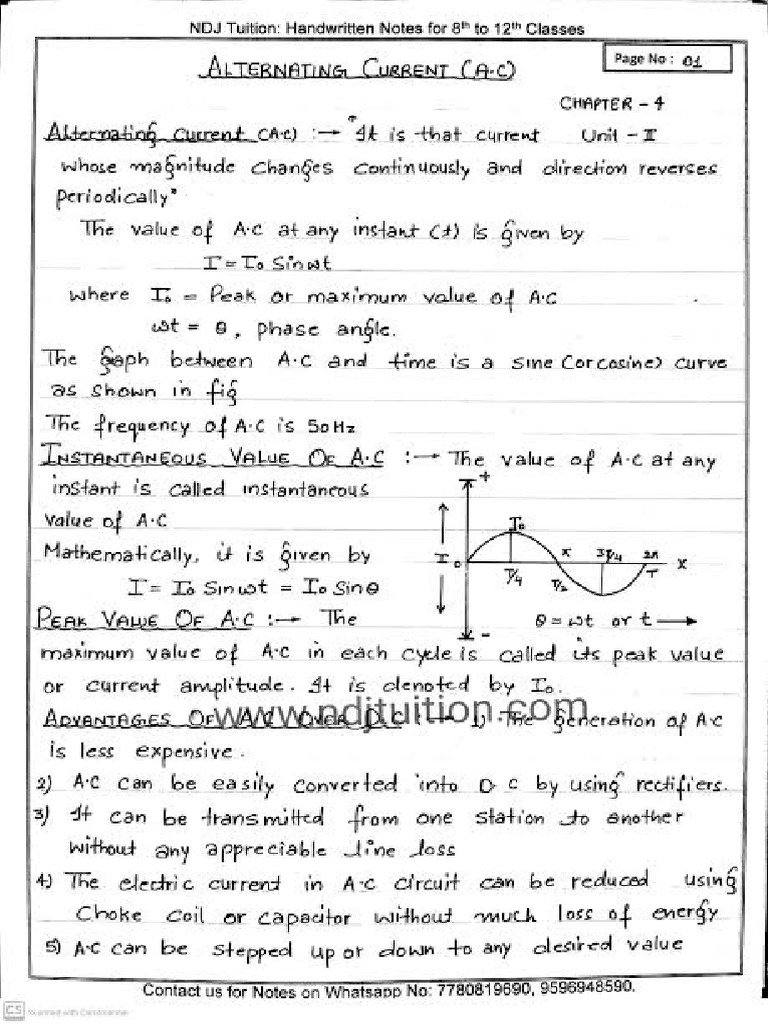 NDJ Tuition: Handwritten Notes for 8th to 12th Classes
Page No : 01
ALTERNATING CURRENT (A.C)
CHAPTER - 4
Alternating Current (A.C) :→ "It is that current Unit - II
whose magnitude changes continuously and direction reverses
periodically"
The value of A.C at any instant (t) is given by
I = I₀ Sin ωt
where I₀ = Peak or maximum value of A.C
ωt = θ, phase angle.
The gaph between A.C and time is a sine (or cosine) curve
as shown in fig
The frequency of A.C is 50 Hz
INSTANTANEOUS VALUE OF A.C :→ The value of A.C at any
instant is called instantaneous
value of A.C
Mathematically, it is given by
I = I₀ Sin ωt = I₀ Sin θ
+
I₀
I 0 T/4 π T/2 3T/4 2π T X
-
θ = ωt or t →
PEAK VALUE OF A.C :→ The
maximum value of A.C in each cycle is called its peak value
or current amplitude. It is denoted by I₀.
www.ndjtuition.com
ADVANTAGES OF A.C OVER D.C :→ 1) The generation of A.C
is less expensive.
2) A.C can be easily converted into D C by using rectifiers.
3) It can be transmitted from one station to another
without any appreciable line loss
4) The electric current in A.C circuit can be reduced using
Choke coil or capacitor without much loss of energy
5) A.C can be stepped up or down to any desired value
Contact us for Notes on Whatsapp No: 7780819690, 9596948590.
CS Scanned with CamScanner